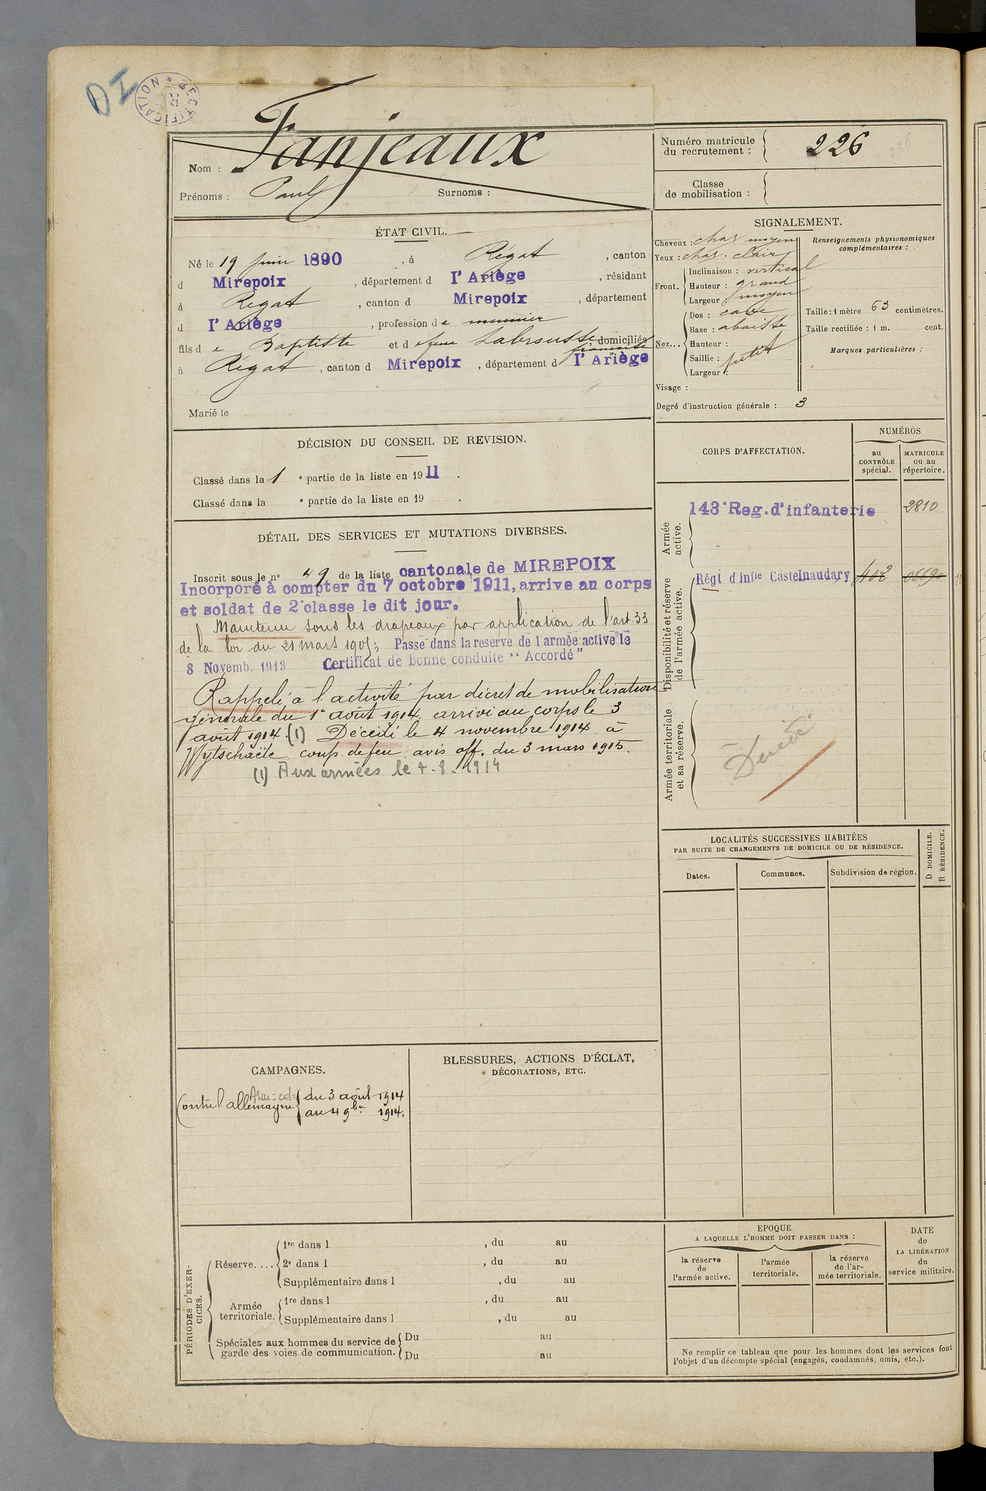 DI
RECTIFICATION
Nom : Fanjeaux
Prénoms : Paul Surnoms :
Numéro matricule
du recrutement : 226
Classe
de mobilisation :
ÉTAT CIVIL.
Né le 19 juin 1890, à Régat, canton
d Mirepoix, département d l'Ariège, résidant
à Régat, canton d Mirepoix, département
d l'Ariège, profession d e meunier
fils d e Baptiste et d e feue Labrousse domiciliés
Françoise
à Régat, canton d Mirepoix, département d l'Ariège
Marié le
SIGNALEMENT.
Cheveux : chat moyen
Yeux : chat. clair
Front. Inclinaison : vertical
Hauteur : grand
Largeur : moyen
Nez... Dos : cave
Base : abaissée
Hauteur :
Saillie : petit
Largeur :
Visage :
Degré d'instruction générale : 3
Renseignements physionomiques
complémentaires :
Taille : 1 mètre 63 centimètres.
Taille rectifiée : 1 m. cent.
Marques particulières :
DÉCISION DU CONSEIL DE REVISION.
Classé dans la 1 e partie de la liste en 1911.
Classé dans la e partie de la liste en 19 .
DÉTAIL DES SERVICES ET MUTATIONS DIVERSES.
Inscrit sous le n° 49 de la liste cantonale de MIREPOIX
Incorporé à compter du 7 octobre 1911, arrive au corps
et soldat de 2e classe le dit jour.
Maintenu sous les drapeaux par application de l'art 33
de la loi du 21 mars 1905; Passé dans la reserve de l'armée active le
8 Novemb. 1913 Certificat de Bonne conduite "Accordé"
Rappelé à l'activité par décret de mobilisation
générale du 1er août 1914 arrivé au corps le 3
août 1914. (1) Décédé le 4 novembre 1914 à
Wytschaëte coup de feu avis off. du 3 mars 1915.
(1) Aux armées le 4-8-1914
CORPS D'AFFECTATION.
NUMÉROS
au
CONTRÔLE
spécial.
MATRICULE
ou au
répertoire.
Armée
active.
143e Reg. d'infanterie 2810
Disponibilité et réserve
de l'armée active.
Régt d'infie Castelnaudary
Armée territoriale
et sa réserve.
Décédé
LOCALITÉS SUCCESSIVES HABITÉES
PAR SUITE DE CHANGEMENTS DE DOMICILE OU DE RÉSIDENCE.
Dates. Communes. Subdivision de région.
D DOMICILE.
R RÉSIDENCE.
CAMPAGNES.
Contre l'allemagne du 3 août 1914
au 4 9bre 1914.
BLESSURES, ACTIONS D'ÉCLAT,
DÉCORATIONS, ETC.
PÉRIODES D'EXER-
CICES.
Réserve.... 1re dans l , du au
2e dans l , du au
Supplémentaire dans l , du au
Armée
territoriale. 1re dans l , du au
Supplémentaire dans l , du au
Spéciales aux hommes du service de
garde des voies de communication. Du au
Du au
EPOQUE
A LAQUELLE L'HOMME DOIT PASSER DANS :
la réserve
de
l'armée active.
l'armée
territoriale.
la réserve
de l'ar-
mée territoriale.
DATE
de
LA LIBÉRATION
du
service militaire.
Ne remplir ce tableau que pour les hommes dont les services font
l'objet d'un décompte spécial (engagés, condamnés, omis, etc.).